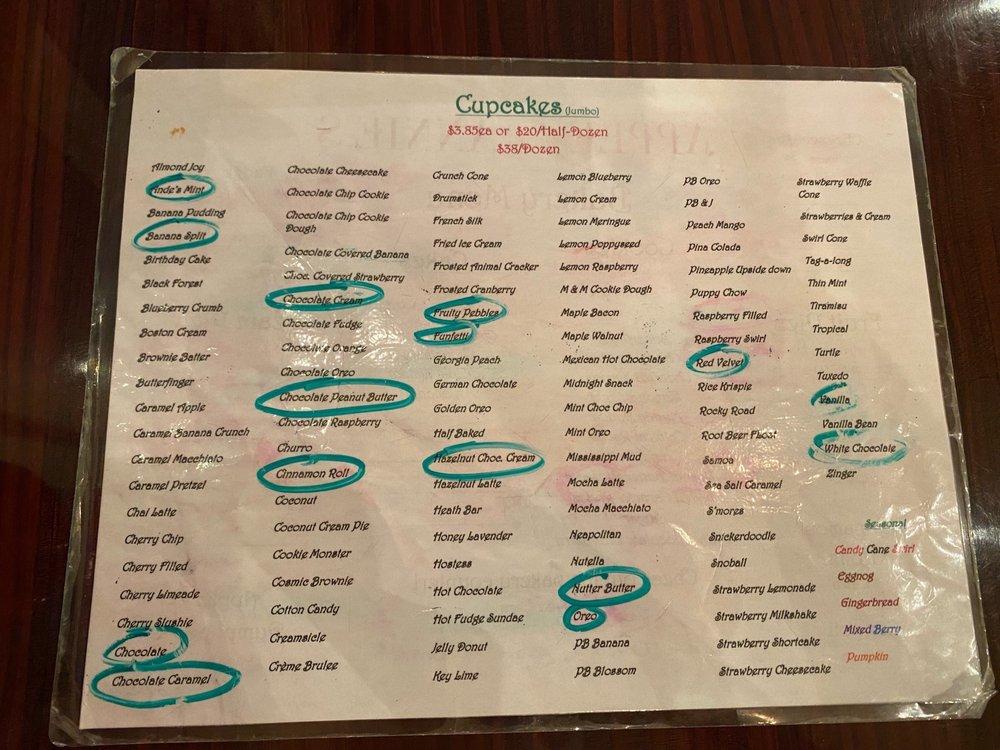 Cupcakes (Jumbo)
$3.85ea or $20/Half-Dozen
$38/Dozen
Almond Joy
Ande's Mint
Banana Pudding
Banana Split
Birthday Cake
Black Forest
Blueberry Crumb
Boston Cream
Brownie Batter
Butterfinger
Caramel Apple
Caramel Banana Crunch
Caramel Macchiato
Caramel Pretzel
Chai Latte
Cherry Chip
Cherry Filled
Cherry Limeade
Cherry Slushie
Chocolate
Chocolate Caramel
Chocolate Cheesecake
Chocolate Chip Cookie
Chocolate Chip Cookie
Dough
Chocolate Covered Banana
Choc. Covered Strawberry
Chocolate Cream
Chocolate Fudge
Chocolate Orange
Chocolate Oreo
Chocolate Peanut Butter
Chocolate Raspberry
Churro
Cinnamon Roll
Coconut
Coconut Cream Pie
Cookie Monster
Cosmic Brownie
Cotton Candy
Creamsicle
Crème Brulee
Crunch Cone
Drumstick
French Silk
Fried Ice Cream
Frosted Animal Cracker
Frosted Cranberry
Fruity Pebbles
Funfetti
Georgia Peach
German Chocolate
Golden Oreo
Half Baked
Hazelnut Choc. Cream
Hazelnut Latte
Heath Bar
Honey Lavender
Hostess
Hot Chocolate
Hot Fudge Sundae
Jelly Donut
Key Lime
Lemon Blueberry
Lemon Cream
Lemon Meringue
Lemon Poppyseed
Lemon Raspberry
M & M Cookie Dough
Maple Bacon
Maple Walnut
Mexican Hot Chocolate
Midnight Snack
Mint Choc Chip
Mint Oreo
Mississippi Mud
Mocha Latte
Mocha Macchiato
Neapolitan
Nutella
Nutter Butter
Oreo
PB Banana
PB Blossom
PB Oreo
PB & J
Peach Mango
Pina Colada
Pineapple Upside down
Puppy Chow
Raspberry Filled
Raspberry Swirl
Red Velvet
Rice Krispie
Rocky Road
Root Beer Float
Samoa
Sea Salt Caramel
S'mores
Snickerdoodle
Snoball
Strawberry Lemonade
Strawberry Milkshake
Strawberry Shortcake
Strawberry Cheesecake
Strawberry Waffle
Cone
Strawberries & Cream
Swirl Cone
Tag-a-long
Thin Mint
Tiramisu
Tropical
Turtle
Tuxedo
Vanilla
Vanilla Bean
White Chocolate
Zinger
Seasonal
Candy Cane Swirl
Eggnog
Gingerbread
Mixed Berry
Pumpkin